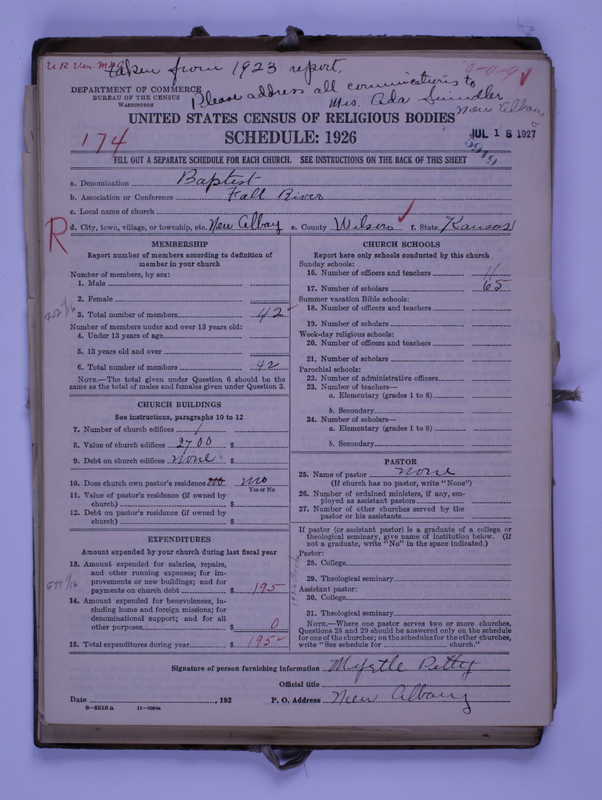 U.R. Ver. M.H.G.
taken from 1923 report.
0-0-9 ✓
Please address all communications to
Mrs. Ada
New Albany
DEPARTMENT OF COMMERCE
BUREAU OF THE CENSUS
WASHINGTON
UNITED STATES CENSUS OF RELIGIOUS BODIES
174
SCHEDULE: 1926
JUL 18 1927
5919
FILL OUT A SEPARATE SCHEDULE FOR EACH CHURCH. SEE INSTRUCTIONS ON THE BACK OF THIS SHEET
a. Denomination Baptist
b. Association or Conference Fall River
c. Local name of church
R
d. City, town, village, or township, etc. New Albany e. County Wilson ✓ f. State Kansas
MEMBERSHIP
Report number of members according to definition of
member in your church
Number of members, by sex:
1. Male
2. Female
3. Total number of members 42
Number of members under and over 13 years old:
4. Under 13 years of age
5. 13 years old and over
6. Total number of members 42
NOTE.—The total given under Question 6 should be the
same as the total of males and females given under Question 3.
CHURCH BUILDINGS
See instructions, paragraphs 10 to 12
7. Number of church edifices 1
8. Value of church edifices 2700 $
9. Debt on church edifices None $
10. Does church own pastor's residence no no
Yes or No
11. Value of pastor's residence (if owned by
church) $
12. Debt on pastor's residence (if owned by
church) $
EXPENDITURES
Amount expended by your church during last fiscal year
13. Amount expended for salaries, repairs,
and other running expenses; for im-
provements or new buildings; and for
payments on church debt $ 195
14. Amount expended for benevolences, in-
cluding home and foreign missions; for
denominational support; and for all
other purposes $ 0
15. Total expenditures during year $ 195
CHURCH SCHOOLS
Report here only schools conducted by this church
Sunday schools:
16. Number of officers and teachers 11
17. Number of scholars 65
Summer vacation Bible schools:
18. Number of officers and teachers
19. Number of scholars
Week-day religious schools:
20. Number of officers and teachers
21. Number of scholars
Parochial schools:
22. Number of administrative officers
23. Number of teachers—
a. Elementary (grades 1 to 8)
b. Secondary
24. Number of scholars—
a. Elementary (grades 1 to 8)
b. Secondary
PASTOR
25. Name of pastor none
(If church has no pastor, write "None")
26. Number of ordained ministers, if any, em-
ployed as assistant pastors
27. Number of other churches served by the
pastor or his assistants
If pastor (or assistant pastor) is a graduate of a college or
theological seminary, give name of institution below. (If
not a graduate, write "No" in the space indicated.)
Pastor:
28. College
29. Theological seminary
Assistant pastor:
30. College
31. Theological seminary
NOTE.—Where one pastor serves two or more churches,
Questions 28 and 29 should be answered only on the schedule
for one of the churches; on the schedules for the other churches,
write "See schedule for church."
Signature of person furnishing information Myrtle Petty
Official title
Date , 192
P. O. Address New Albany